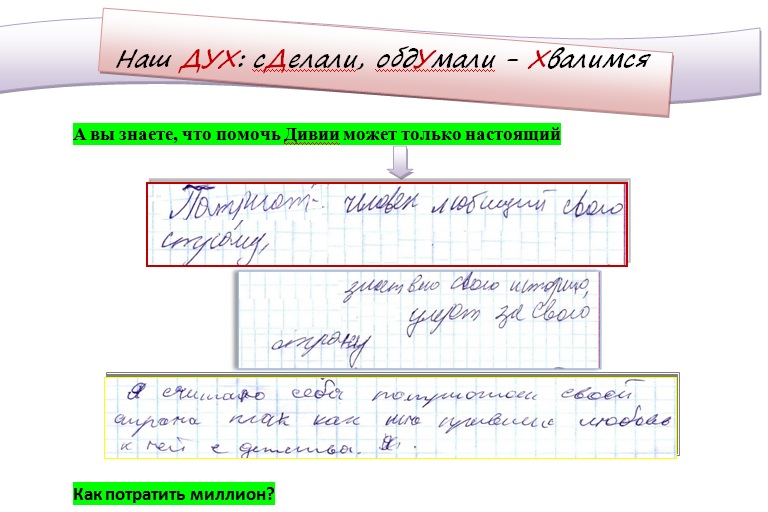 Наш ДУХ: сДелали, обдУмали – Хвалимся
А вы знаете, что помочь Дивии может только настоящий
Патриот - человек любищий свою
страну,
знает всю свою историю,
умрёт за свою
страну
Я считаю себя патриотом своей
страны так как мне привили любовь
к ней с детства.
Как потратить миллион?